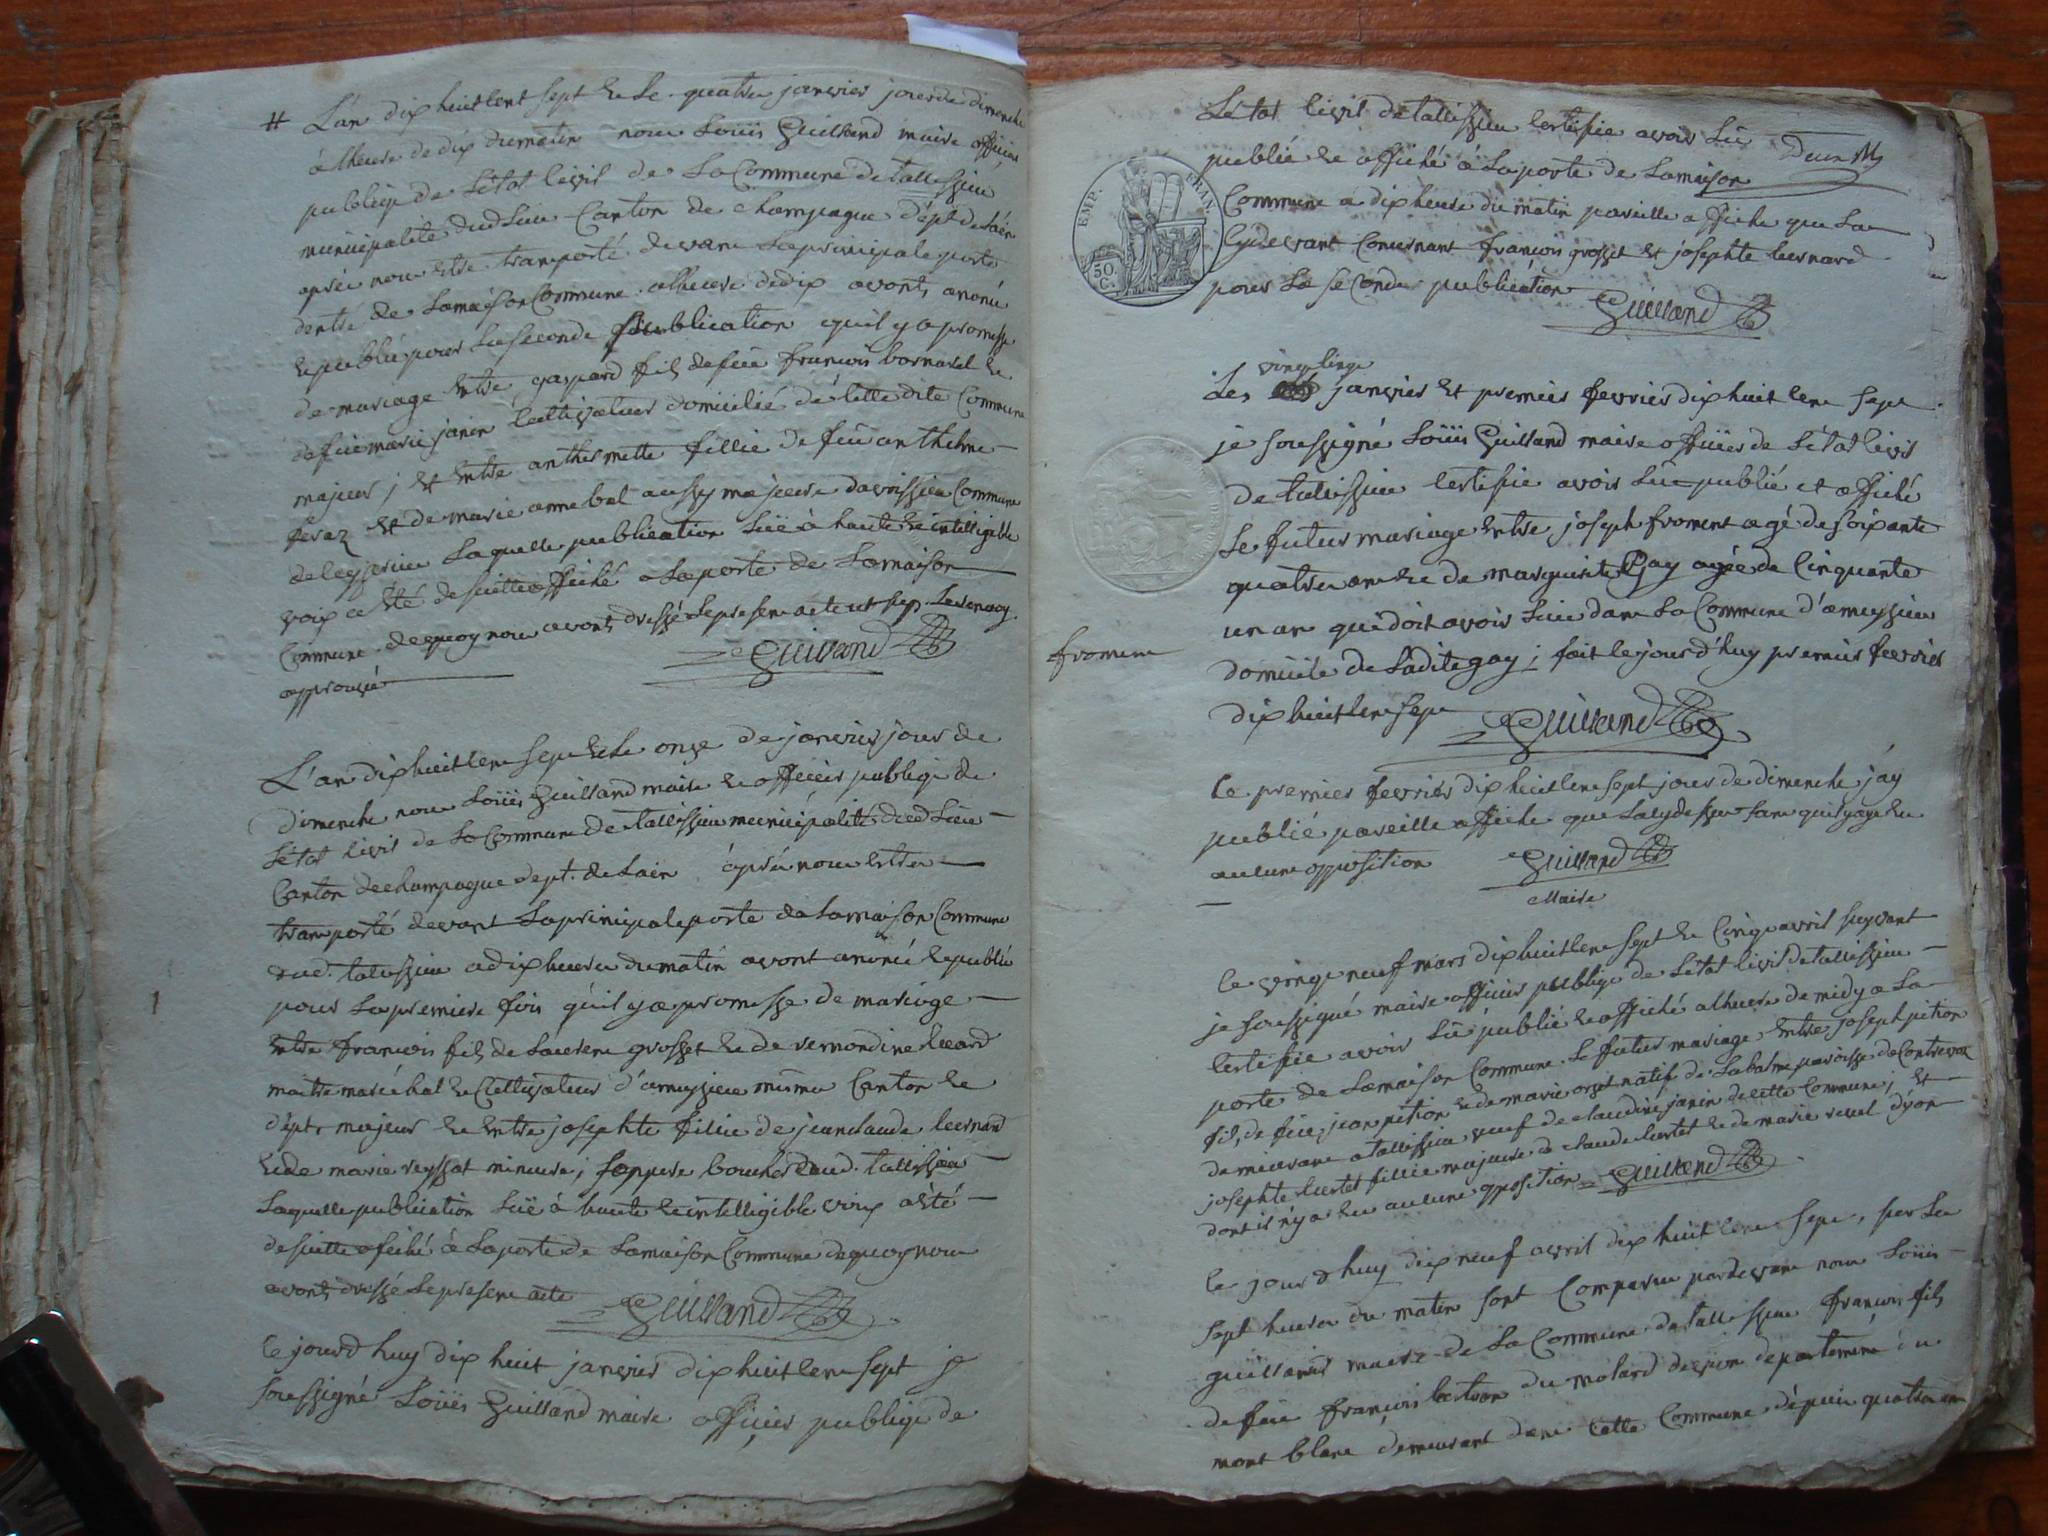 # L'an dix huit cent sept & le quatre janvier jour de dimanche
à l'heure de dix du matin nous Loüis Guilland maire officier
publiqe de l'état civil de la Commune de tallissieu
municipalité dud Lieu Canton de champagne dépt de L'ain
aprés nous etre transporté devant la principale porte
dentré de La maison Commune a lheure de dix avont anoncé
& publié pour La seconde publication quil y a promesse
de mariage entre gaspard fils de feu françois bornarel &
de feüe marie janin Cultivateur domicilié de Cette dite Commune
majeur ; et entre anthermette fillie de feu anthelme
feraz et de marie anne bal aussy majeure davrissieu Commune
de Ceyzerieu Laquelle publication Lüe à haute & intelligible
voix a été de suitte affiché a La porte de La maison
Commune de quoy nous avont dressé Le present acte
approuvé Guilland
L'an dix huit cent sept & le onze de janvier jour de
dimanche nous Loüis Guilland maire & officier publiqe de
L'état Civil de La Commune de tallissieu municipalité dud Lieu
Canton de champagne dept. de Lain aprés nous etre
transporté devant La principale porte de La maison Commune
dud. talissieu a dix heures du matin avont anoncé & publié
pour La premiere fois qu'il y a promesse de mariage
entre francois fils de Laurent grosset & de
maitre maréchal & Cultivateur d'ameyzieu même Canton &
dépt. majeur & entre josephte fillie de jean claude bernard
& de marie reyssat mineure ; dud. tallissieu
Laquelle publication Lüe à haute & intelligible voix a été
de suitte afiché à La porte de La maison Commune de quoy nous
avont dressé Le present acte Guilland
Ce jourd'huy dix huit janvier dix huit cent sept je
soussigné Loüis Guilland maire officier publiqe de
L'état Civil de tallissieu Certifie avoir Lu
publié & affiché à La porte de La maison
Commune a dix heure du matin pareille affiche que La
Cy devant Concernant françois grosset et josephte bernard
pour La seconde publication Guilland
EMP. FRAN.
50 C.
vingt cinq
Les janvier et premier fevrier dix huit cent sept
je soussigné Loüis Guilland maire officier de L'état Civil
de tallissieu Certifie avoir Lu publié et affiché
Le futur mariage entre joseph froment agé de soixante
quatre ans & de marguerite Gay agée de Cinquante
un an qui doit avoir Lieu dans La Commune d'ameyzieu
froment
domicile de Ladite gay ; fait le jourd'huy premier fevrier
dix huit cent sept Guilland
Ce premier fevrier dix huit cent sept jour de dimanche j'ay
publié pareille affiche que La Cy dessus sans quil y aye eu
aucune opposition Guilland
Maire
Le vingt neuf mars dix huit cent sept & Cinq avril suyvant
je soussigné maire officier publiqe de L'état Civil de tallissieu
Certifie avoir Lu publié & affiché a lheure de midy a La
porte de La maison Commune Le futur mariage entre joseph pition
fils de feu jean pition & de marie orset natif de Labalme paroisse de Contrevoz
demeurant a tallissieu veuf de claudine janin de cette Commune ; et
josephte Curtet fillie majeure à claude Curtet & de marie revel d'yon
dont il n'y a eu aucune opposition Guilland
Ce jourd'huy dix neuf avril dix huit cent sept, sur Les
sept heures du matin sont Comparu pardevant nous Loüis
guilland maire de La Commune de tallissieu francois fils
de feu françois bertran du molard de departement du
mont blanc demeurant dans Cette Commune dépuis quatre ans